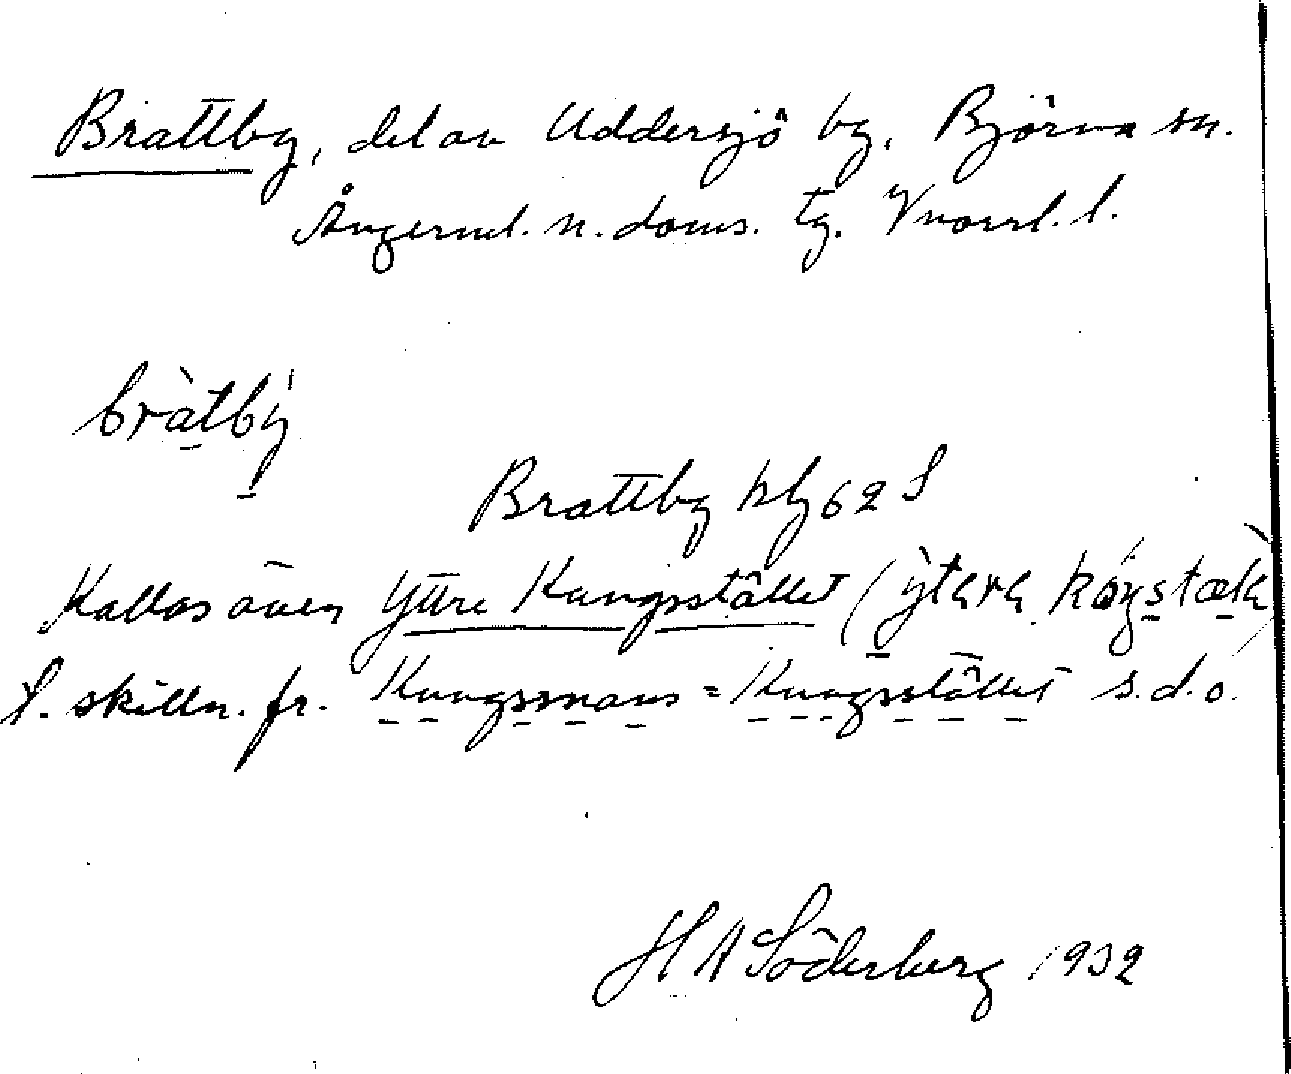 Brattby, del av Uddersjö by. Björna sn.
Ångerml. n. doms. tg. Vnorrl. l.
bràtbý
Brattby klg 62 S
Kallas även Yttre Kungsstället (
t. skilln. fr. Kungsmans-Kungsstället s.d.o.
H A Söderberg 1932